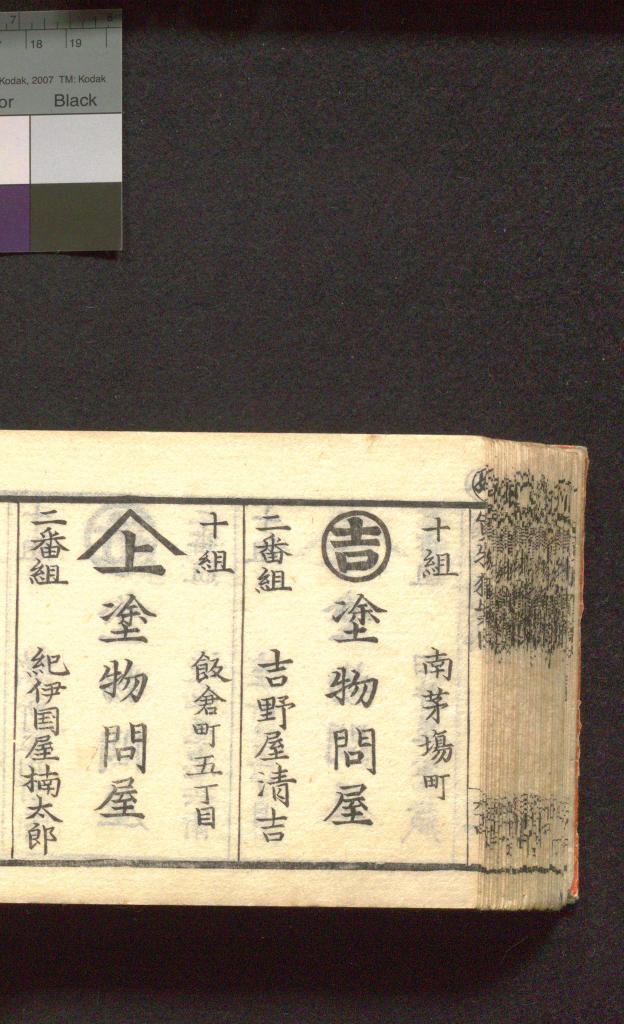 7 8
18 19
Kodak, 2007 TM: Kodak
or Black
十組 南茅場町
吉 塗物問屋
二番組 吉野屋清吉
十組 飯倉町五丁目
上 塗物問屋
二番組 紀伊国屋楠太郎